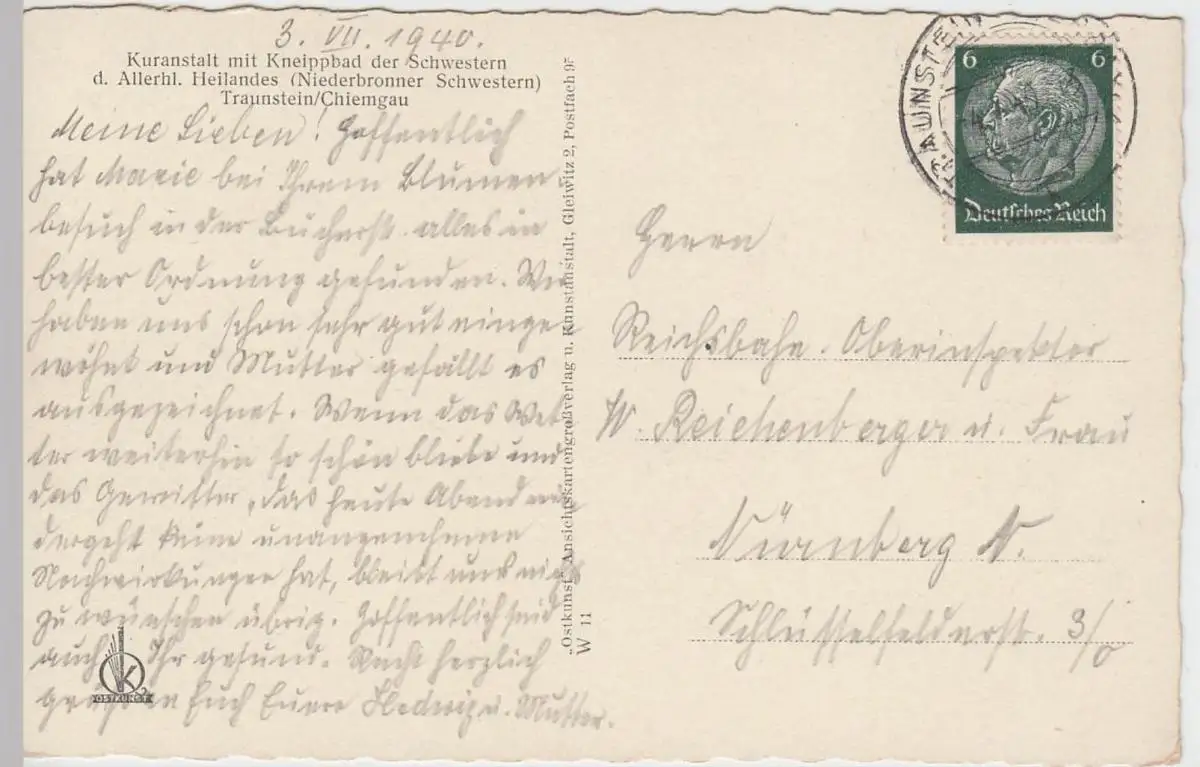 3. VII. 1940.
Kuranstalt mit Kneippbad der Schwestern
d. Allerhl. Heilandes (Niederbronner Schwestern)
Traunstein/Chiemgau
Meine Lieben! Hoffentlich
hat Marie bei Ihrem Blumen-
besuch in der alles in
bester Ordnung gefunden. Wir
haben uns schon sehr gut einge-
wöhnt und Mutter gefällt es
ausgezeichnet. Wenn das Wet-
ter weiterhin so schön bliebe und
das Gewitter, das heute Abend nie-
dergeht keine unangenehmen
Nachwirkungen hat, bleibt uns nichts
zu wünschen übrig. Hoffentlich seid
auch Ihr gesund. Recht herzlich
grüßen Euch Euere Hedwig u. Mutter.
OSTKUNST
„Ostkunst" Ansichtskartengroßverlag u. Kunstanstalt, Gleiwitz 2, Postfach 97
W 11
TRAUNSTEIN
6 6
Deutsches Reich
Herrn
Reichsbahn-Oberinspektor
W. Reichenberger u. Frau
Nürnberg N.
Schlüsselfelderstr. 3/0